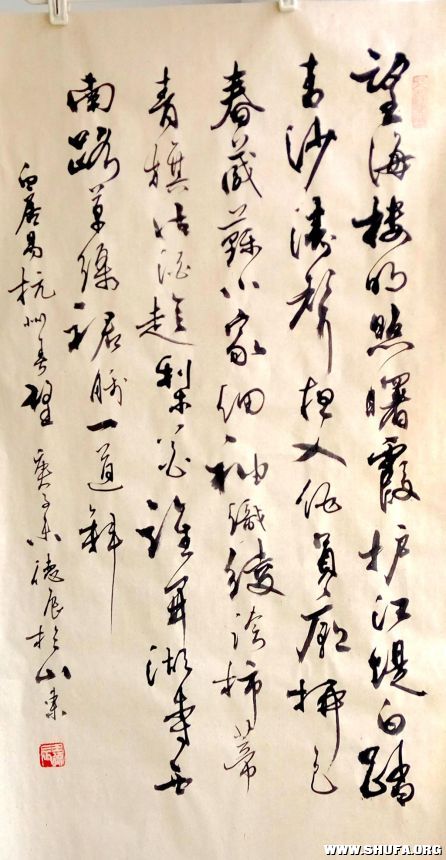 望海楼明照曙霞护江堤白踏
沙涛声入伍员庙柳色
春藏蘇小家红袖織绫誇柿蒂
青旗沽酒趁梨花谁开湖寺西
南路草绿裙腰一道斜
白居易杭州春望 德辰於山東
WWW.SHUFA.ORG